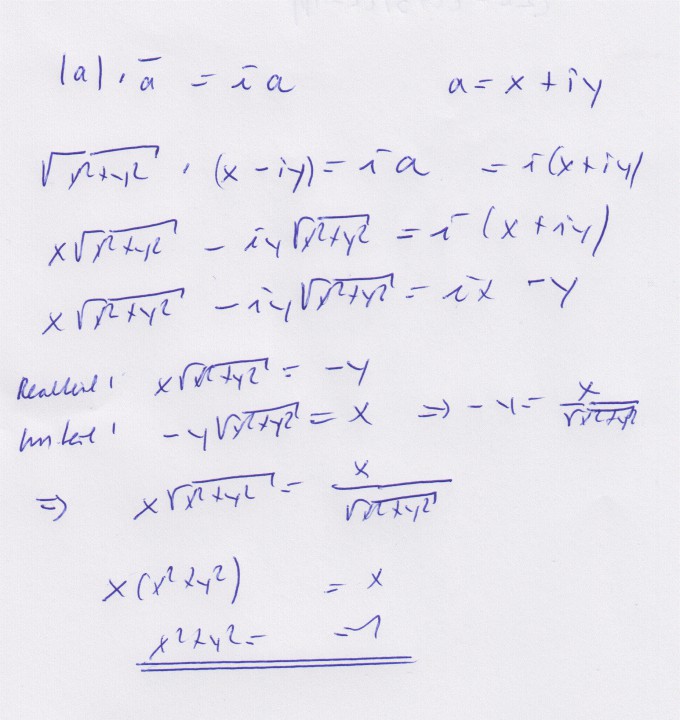 |a| · a̅ = i a a = x + iy
√x²+y² · (x - iy) = i a = i(x+iy)
x√x²+y² - iy√x²+y² = i (x + iy)
x√x²+y² - iy√x²+y² = ix - y
Realteil: x√x²+y² = -y
Im teil: -y√x²+y² = x ⇒ -y = x/√x²+y²
⇒ x√x²+y² = x/√x²+y²
x(x²+y²) = x
x²+y² = = 1